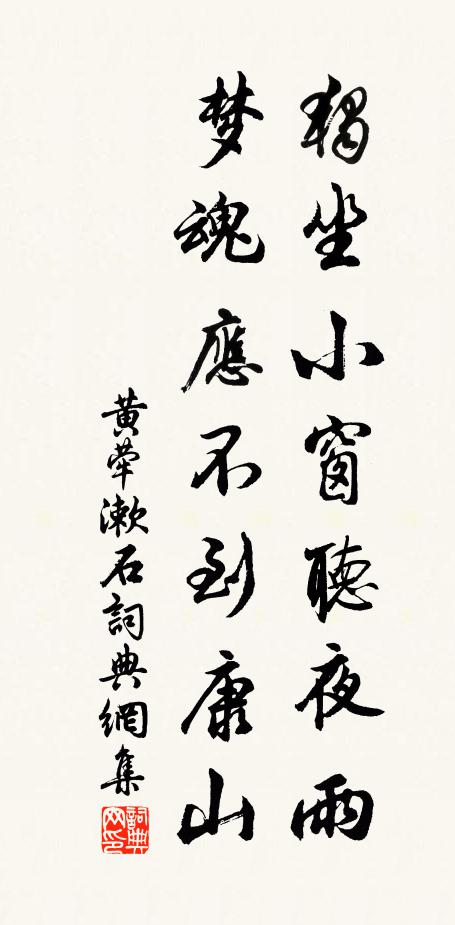 獨坐小窗聽夜雨
梦魂應不到康山
黄犖漱石詞典網集
詞典網印